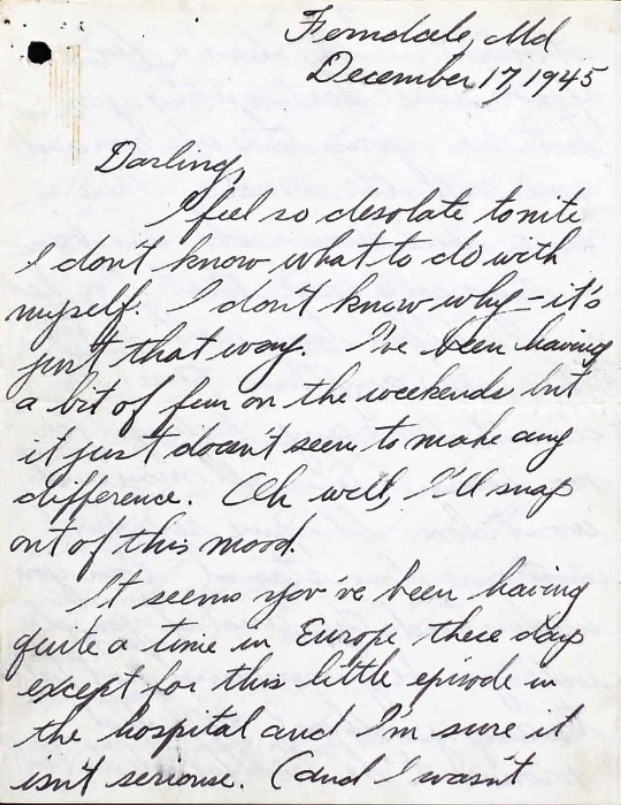 Ferndale, Md
December 17, 1945
Darling,
I feel so desolate tonite
I don't know what to do with
myself. I don't know why - it's
just that way. I've been having
a bit of fun on the weekends but
it just doesn't seem to make any
difference. Oh well, I'll snap
out of this mood.
It seems you've been having
quite a time in Europe these days
except for this little episode in
the hospital and I'm sure it
isn't serious. (and I wasn't